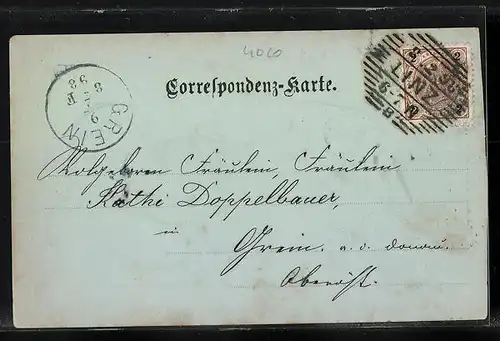 4060
Correspondenz-Karte.
GREIN
98
LINZ
Wolgeboren Fräulein, Fräulein
Käthi Doppelbauer,
in
Grein a. d. Donau.
Oberöst.